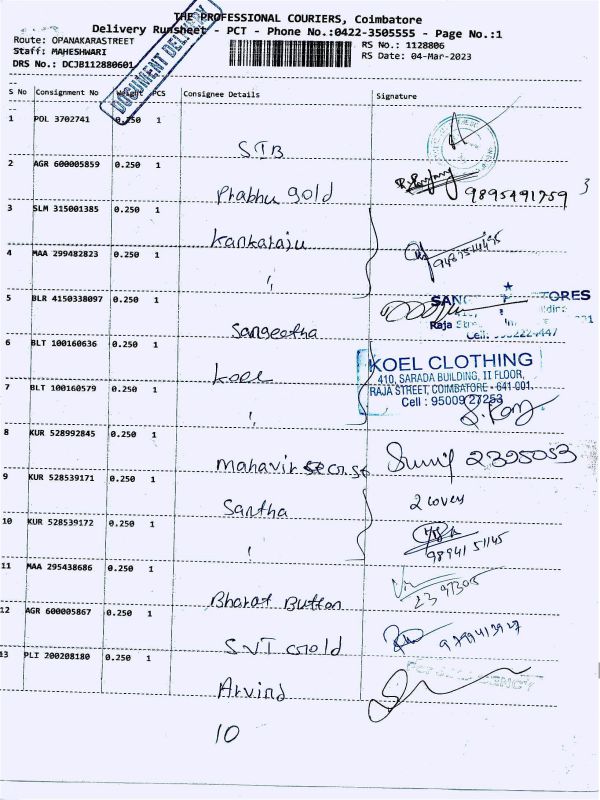 THE PROFESSIONAL COURIERS, Coimbatore
Delivery Runsheet - PCT - Phone No.:0422-3505555 - Page No.:1
Route: OPANAKARASTREET
Staff: MAHESHWARI
DRS No.: DCJB112880601
RS No.: 1128806
RS Date: 04-Mar-2023
DOCUMENT DELIVERY
S No Consignment No Weight PCS Consignee Details Signature
1 POL 3702741 0.250 1
STB
2 AGR 600005859 0.250 1
Prabhu gold 9895491759
3 SLM 315001385 0.250 1
Kankaraju
4 MAA 299482823 0.250 1
"
5 BLR 4150338097 0.250 1
Sangeetha
Raja
6 BLT 100160636 0.250 1
Koel
KOEL CLOTHING
410, SARADA BUILDING, II FLOOR,
RAJA STREET, COIMBATORE - 641 001.
Cell : 95009 27253
7 BLT 100160579 0.250 1
"
8 KUR 528992845 0.250 1
Mahavir Sunil 2395053
9 KUR 528539171 0.250 1
Santha 2 covers
10 KUR 528539172 0.250 1
" 98941 51145
11 MAA 295438686 0.250 1
Bharat Button
12 AGR 600005867 0.250 1
SVT Gold
13 PLI 200208180 0.250 1
Arvind
10